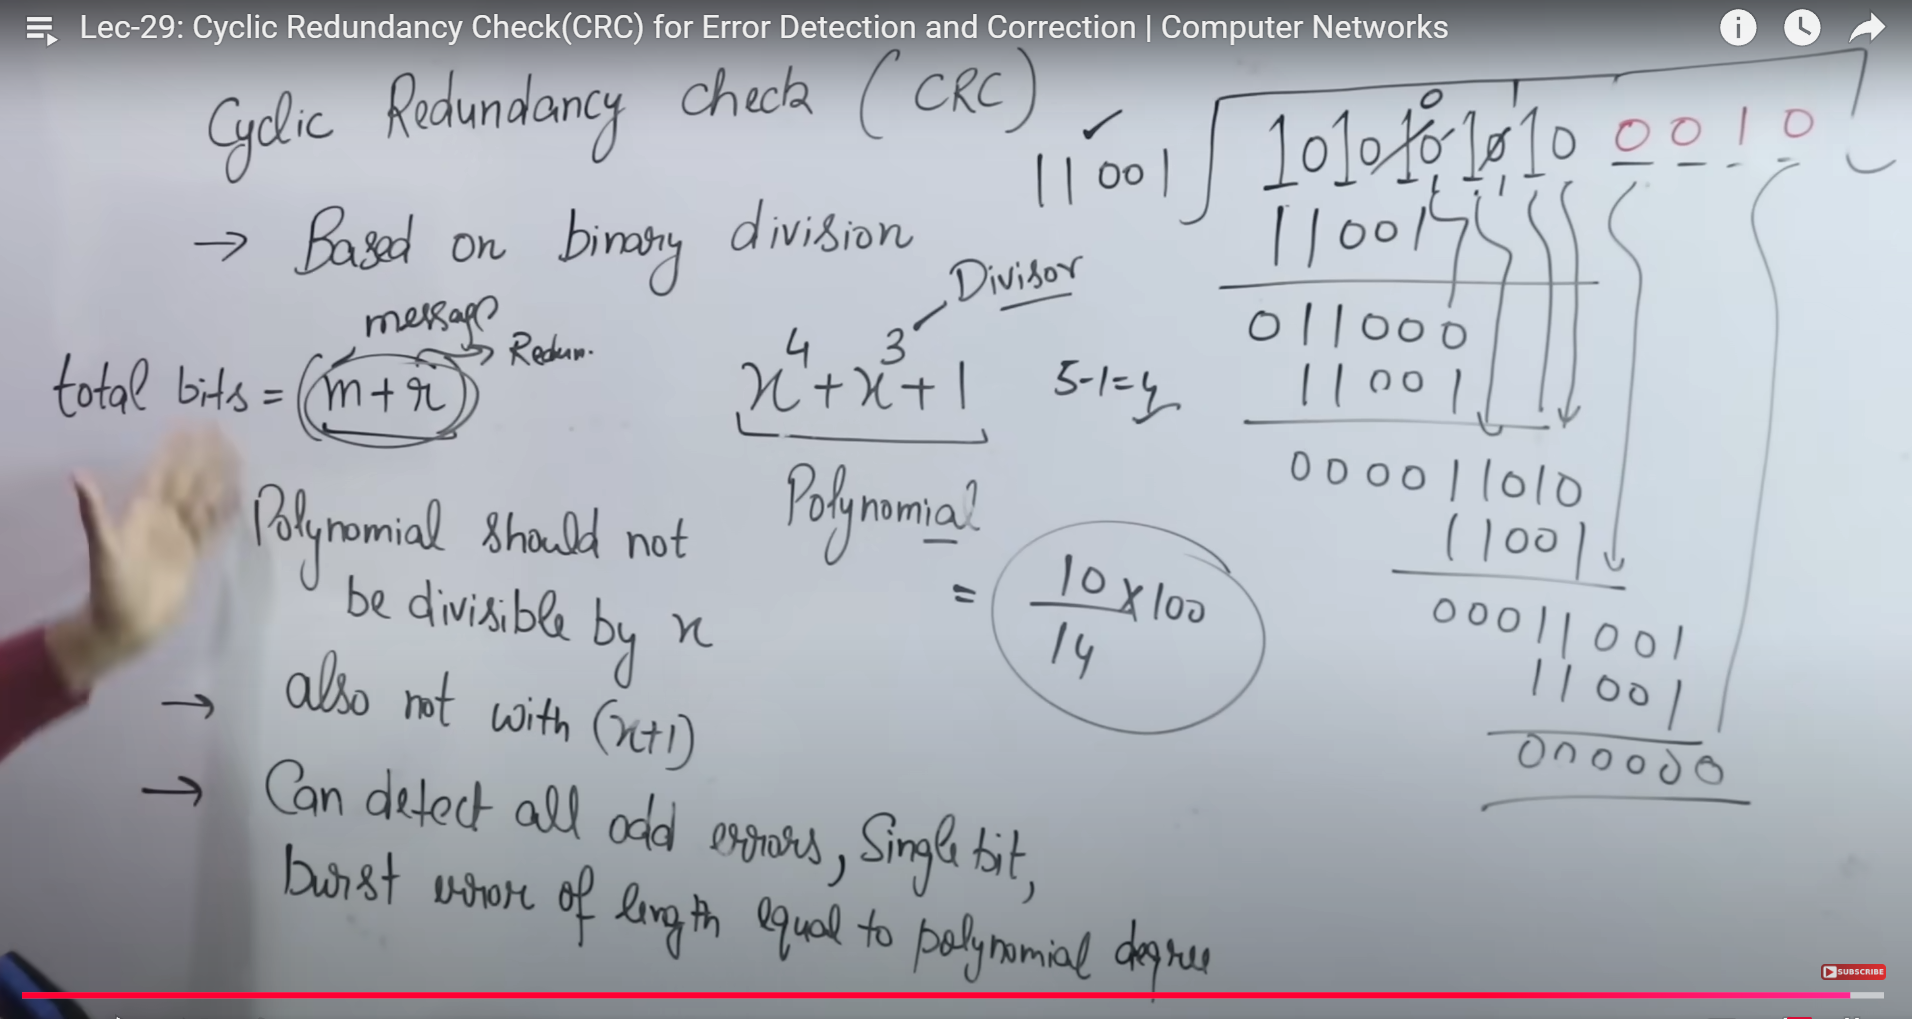 Lec-29: Cyclic Redundancy Check(CRC) for Error Detection and Correction | Computer Networks
Cyclic Redundancy Check (CRC)
→ Based on binary division
message
Redun.
total bits = m + r
Divisor
x⁴ + x³ + 1
5-1=4
Polynomial
= 10/14 × 100
Polynomial should not
be divisible by x
→ also not with (x+1)
→ Can detect all odd errors, Single bit,
burst error of length equal to polynomial degree
11001
1010 1010 0010
11001
011000
11001
000011010
11001
00011001
11001
000000
SUBSCRIBE